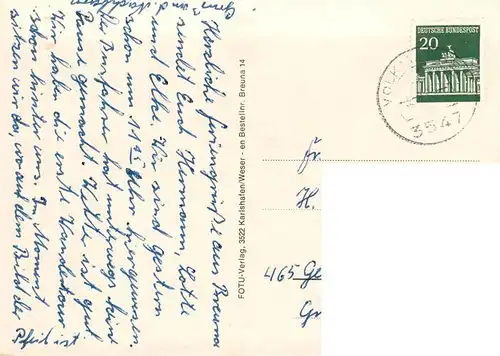 Herzliche Feriengrüße aus Breuna
sendet Euch Hermann, Lotte
und Elke. Wir sind gestern
schon um 11 45 Uhr hiergewesen.
Der Busfahrer hat unterwegs keine
Pause gemacht. Wetter ist gut
Wir haben die erste Wandertour
schon hinter uns. Im Moment
sitzen wir da, wo auf dem Bild der
Pfeil ist
FOTU-Verlag, 3522 Karlshafen/Weser - en Bestellnr. Breuna 14
DEUTSCHE BUNDESPOST
20
VOLKM
3547
Fr.
H.
465 Ge
Gr